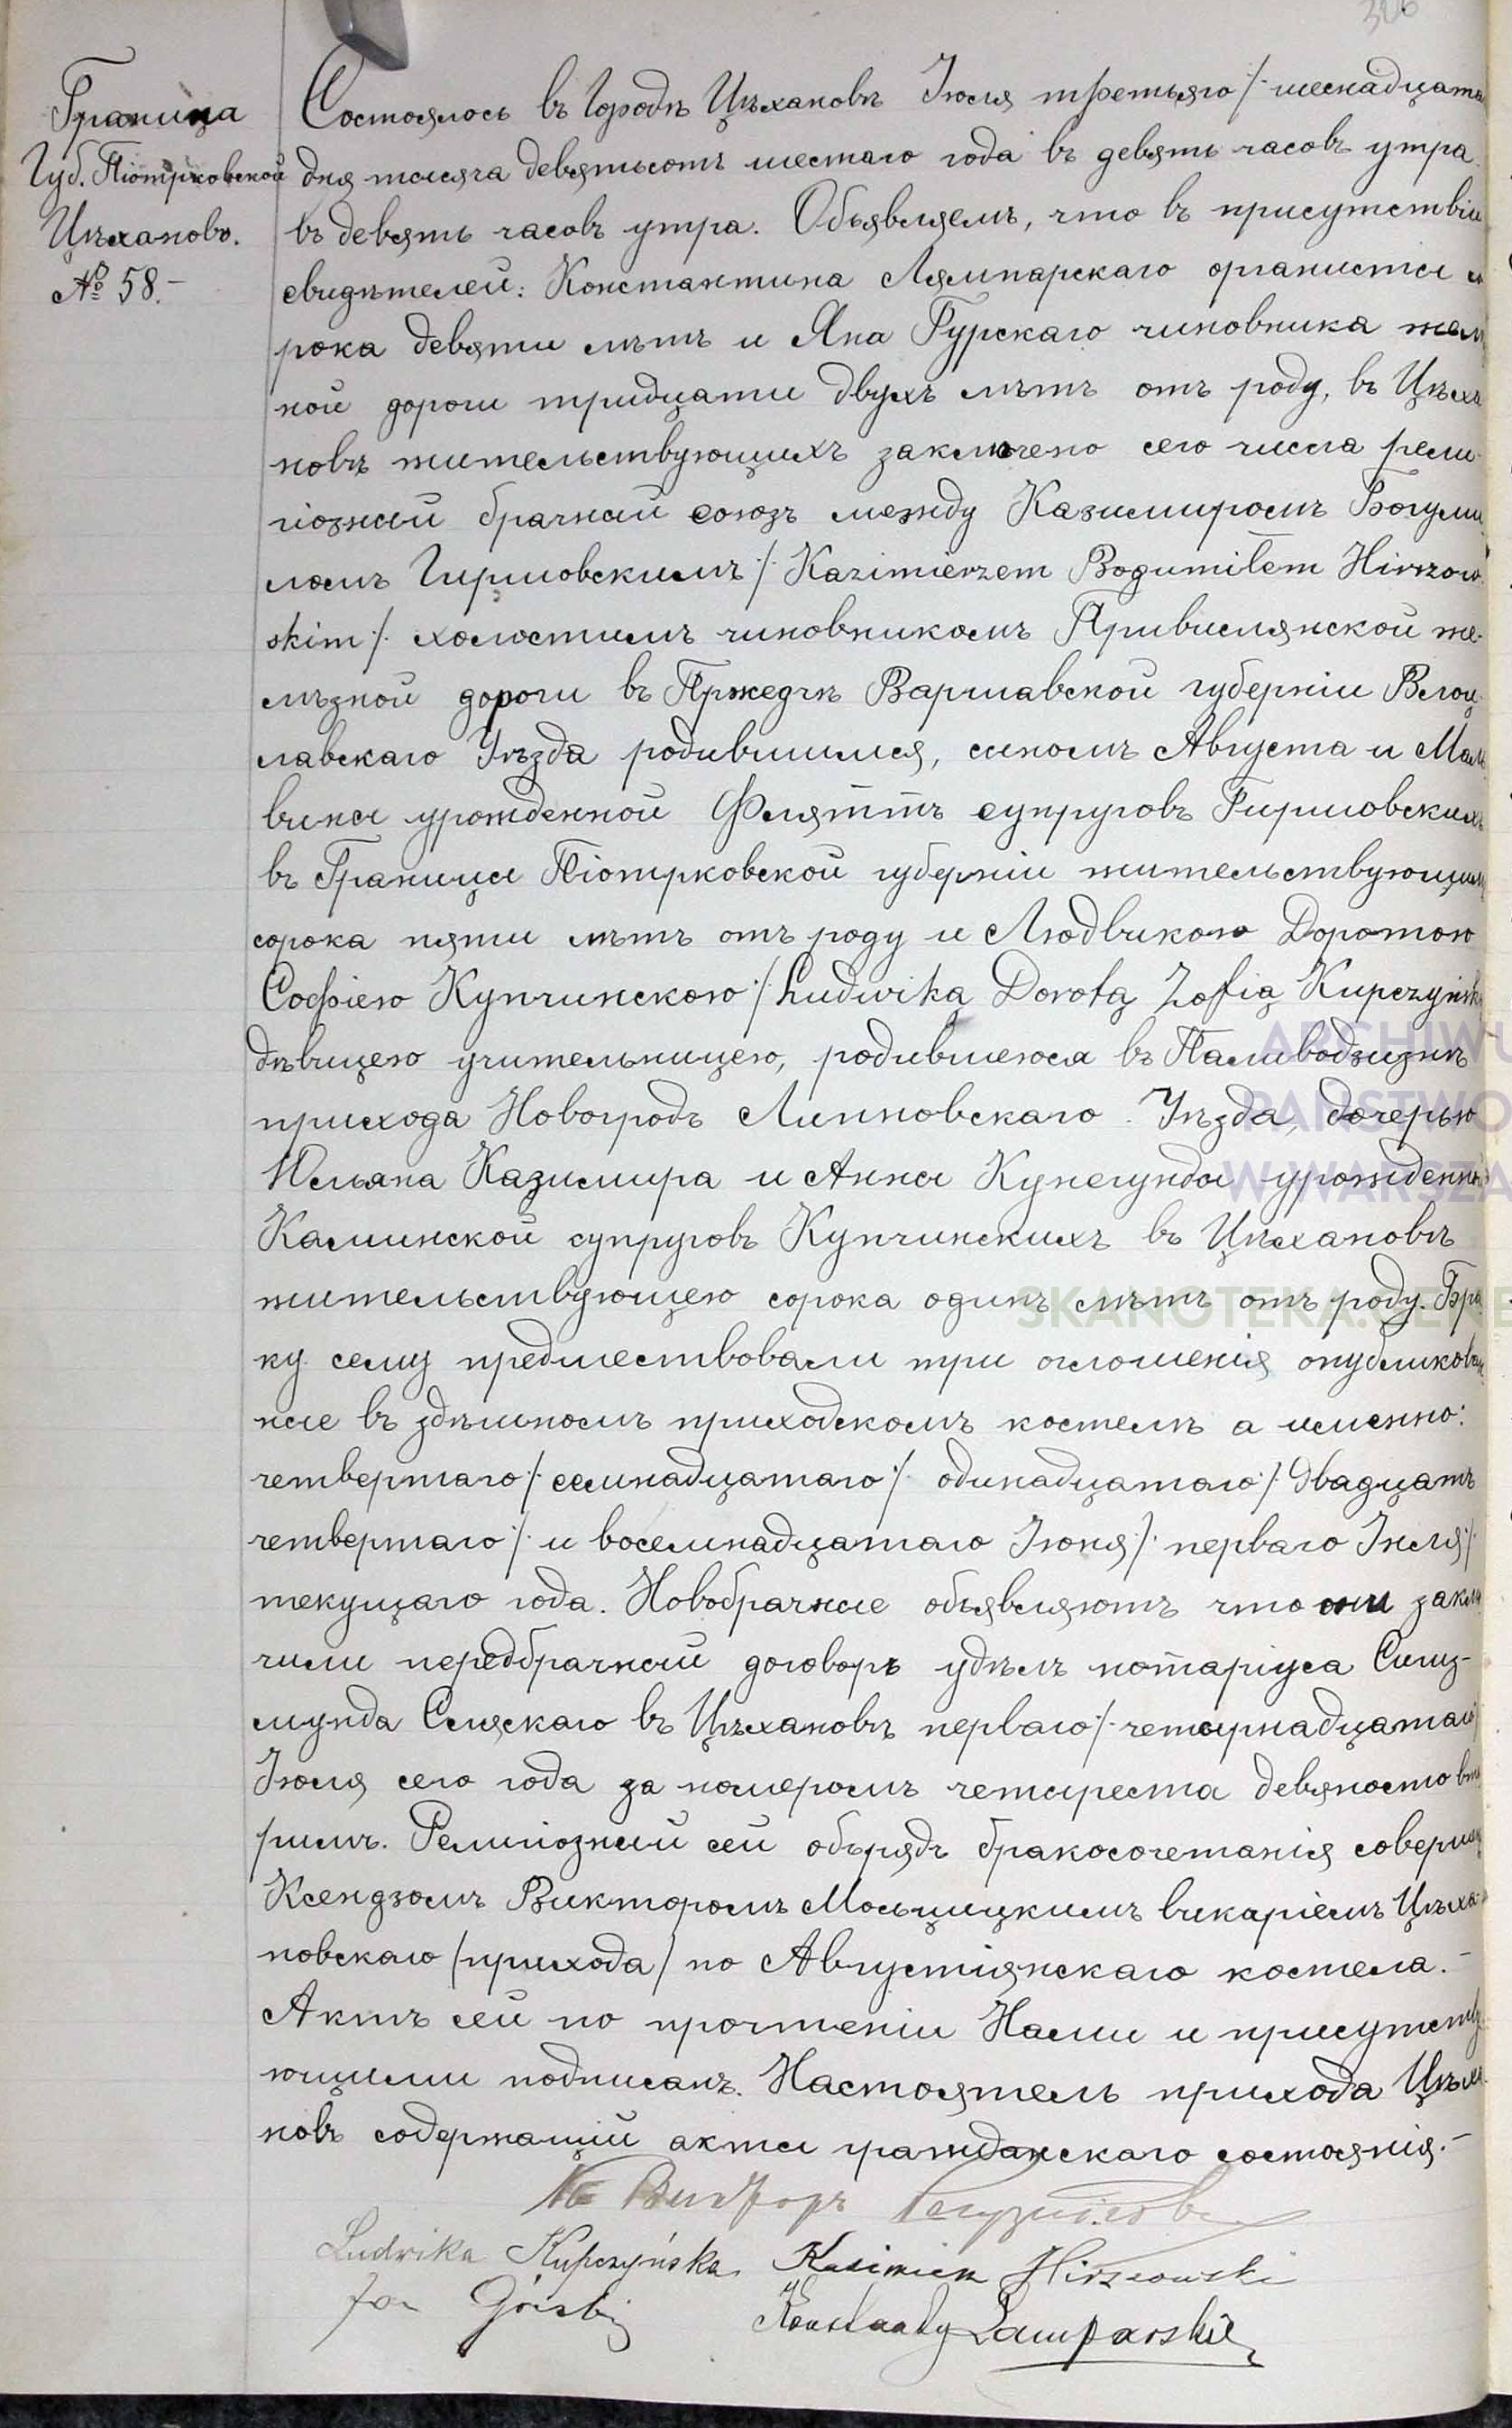 306
Граница
Губ. Піотрковской
Цѣхановъ.
№ 58.-
Состоялось въ Городѣ Цѣхановѣ Іюля третьяго /: шеснадцата
дня тысяча девятьсотъ шестаго года въ девять часовъ утра.
въ девять часовъ утра. Объявляемъ, что въ присутствіи
свидѣтелей: Константина Лямпарскаго органисты со
рока девяти лѣтъ и Яна Гурскаго чиновника желѣ
ной дороги тридцати двухъ лѣтъ отъ роду, въ Цѣха
новѣ жительствующихъ заключено сего числа рели-
гіозный брачный союзъ между Казимиромъ Богуми
ломъ Гиршовскимъ /: Kazimierzem Bogumiłem Hirszow
skim :/ холостымъ чиновникомъ Привислянской же-
лѣзной дороги въ Пржедчѣ Варшавской губерніи Влоц-
лавскаго Уѣзда родившимся, сыномъ Августа и Маль
вины урожденной Флятть супруговъ Гиршовскихъ
въ Границы Піотрковской губерніи жительствующимъ
сорока пяти лѣтъ отъ роду и Людвикою Доротою
Софіею Купчинскою /: Ludwiką Dorotą Zofią Kupczyńską
дѣвицею учительницею, родившеюся въ Паливодзизнѣ
прихода Новогродъ Липновскаго Уѣзда, дочерью
Юльяна Казимира и Анны Кунегунды урожденной
Калинской супруговъ Купчинскихъ въ Цѣхановѣ
жительствующею сорока одинъ лѣтъ отъ роду. Бра
ку сему предшествовали три оглошенія опубликован
ные въ здѣшномъ приходскомъ костелѣ а именно:
четвертаго /: семнадцатаго :/ одинадцатаго /: двадцать
четвертаго :/ и восемнадцатаго Іюня /: перваго Іюля :/
текущаго года. Новобрачные объявляютъ что они заклю
чили передбрачный договоръ удѣлъ нотаріуса Сигиз-
мунда Слускаго въ Цѣхановѣ перваго /: четырнадцатаго
Іюля сего года за номеромъ четыреста девяносто вто
рымъ. Религіозный сей обърядъ бракосочетанія совершенъ
Ксендзомъ Викторомъ Мосьцицкимъ викаріемъ Цѣха-
новскаго /прихода/ по Августіянскаго костела.-
Актъ сей по прочтеніи Нами и присутству
ющими подписанъ. Настоятель прихода Цѣха
новъ содержащій акты гражданскаго состоянія.-
Кс Викторъ
Ludwika Kupczyńska Kazimierz Hirszowski
Jan Górski Konstanty Lamparski
ARCHIWU
PAŃSTWO
W WARSZA
SKANOTEKA.GENE